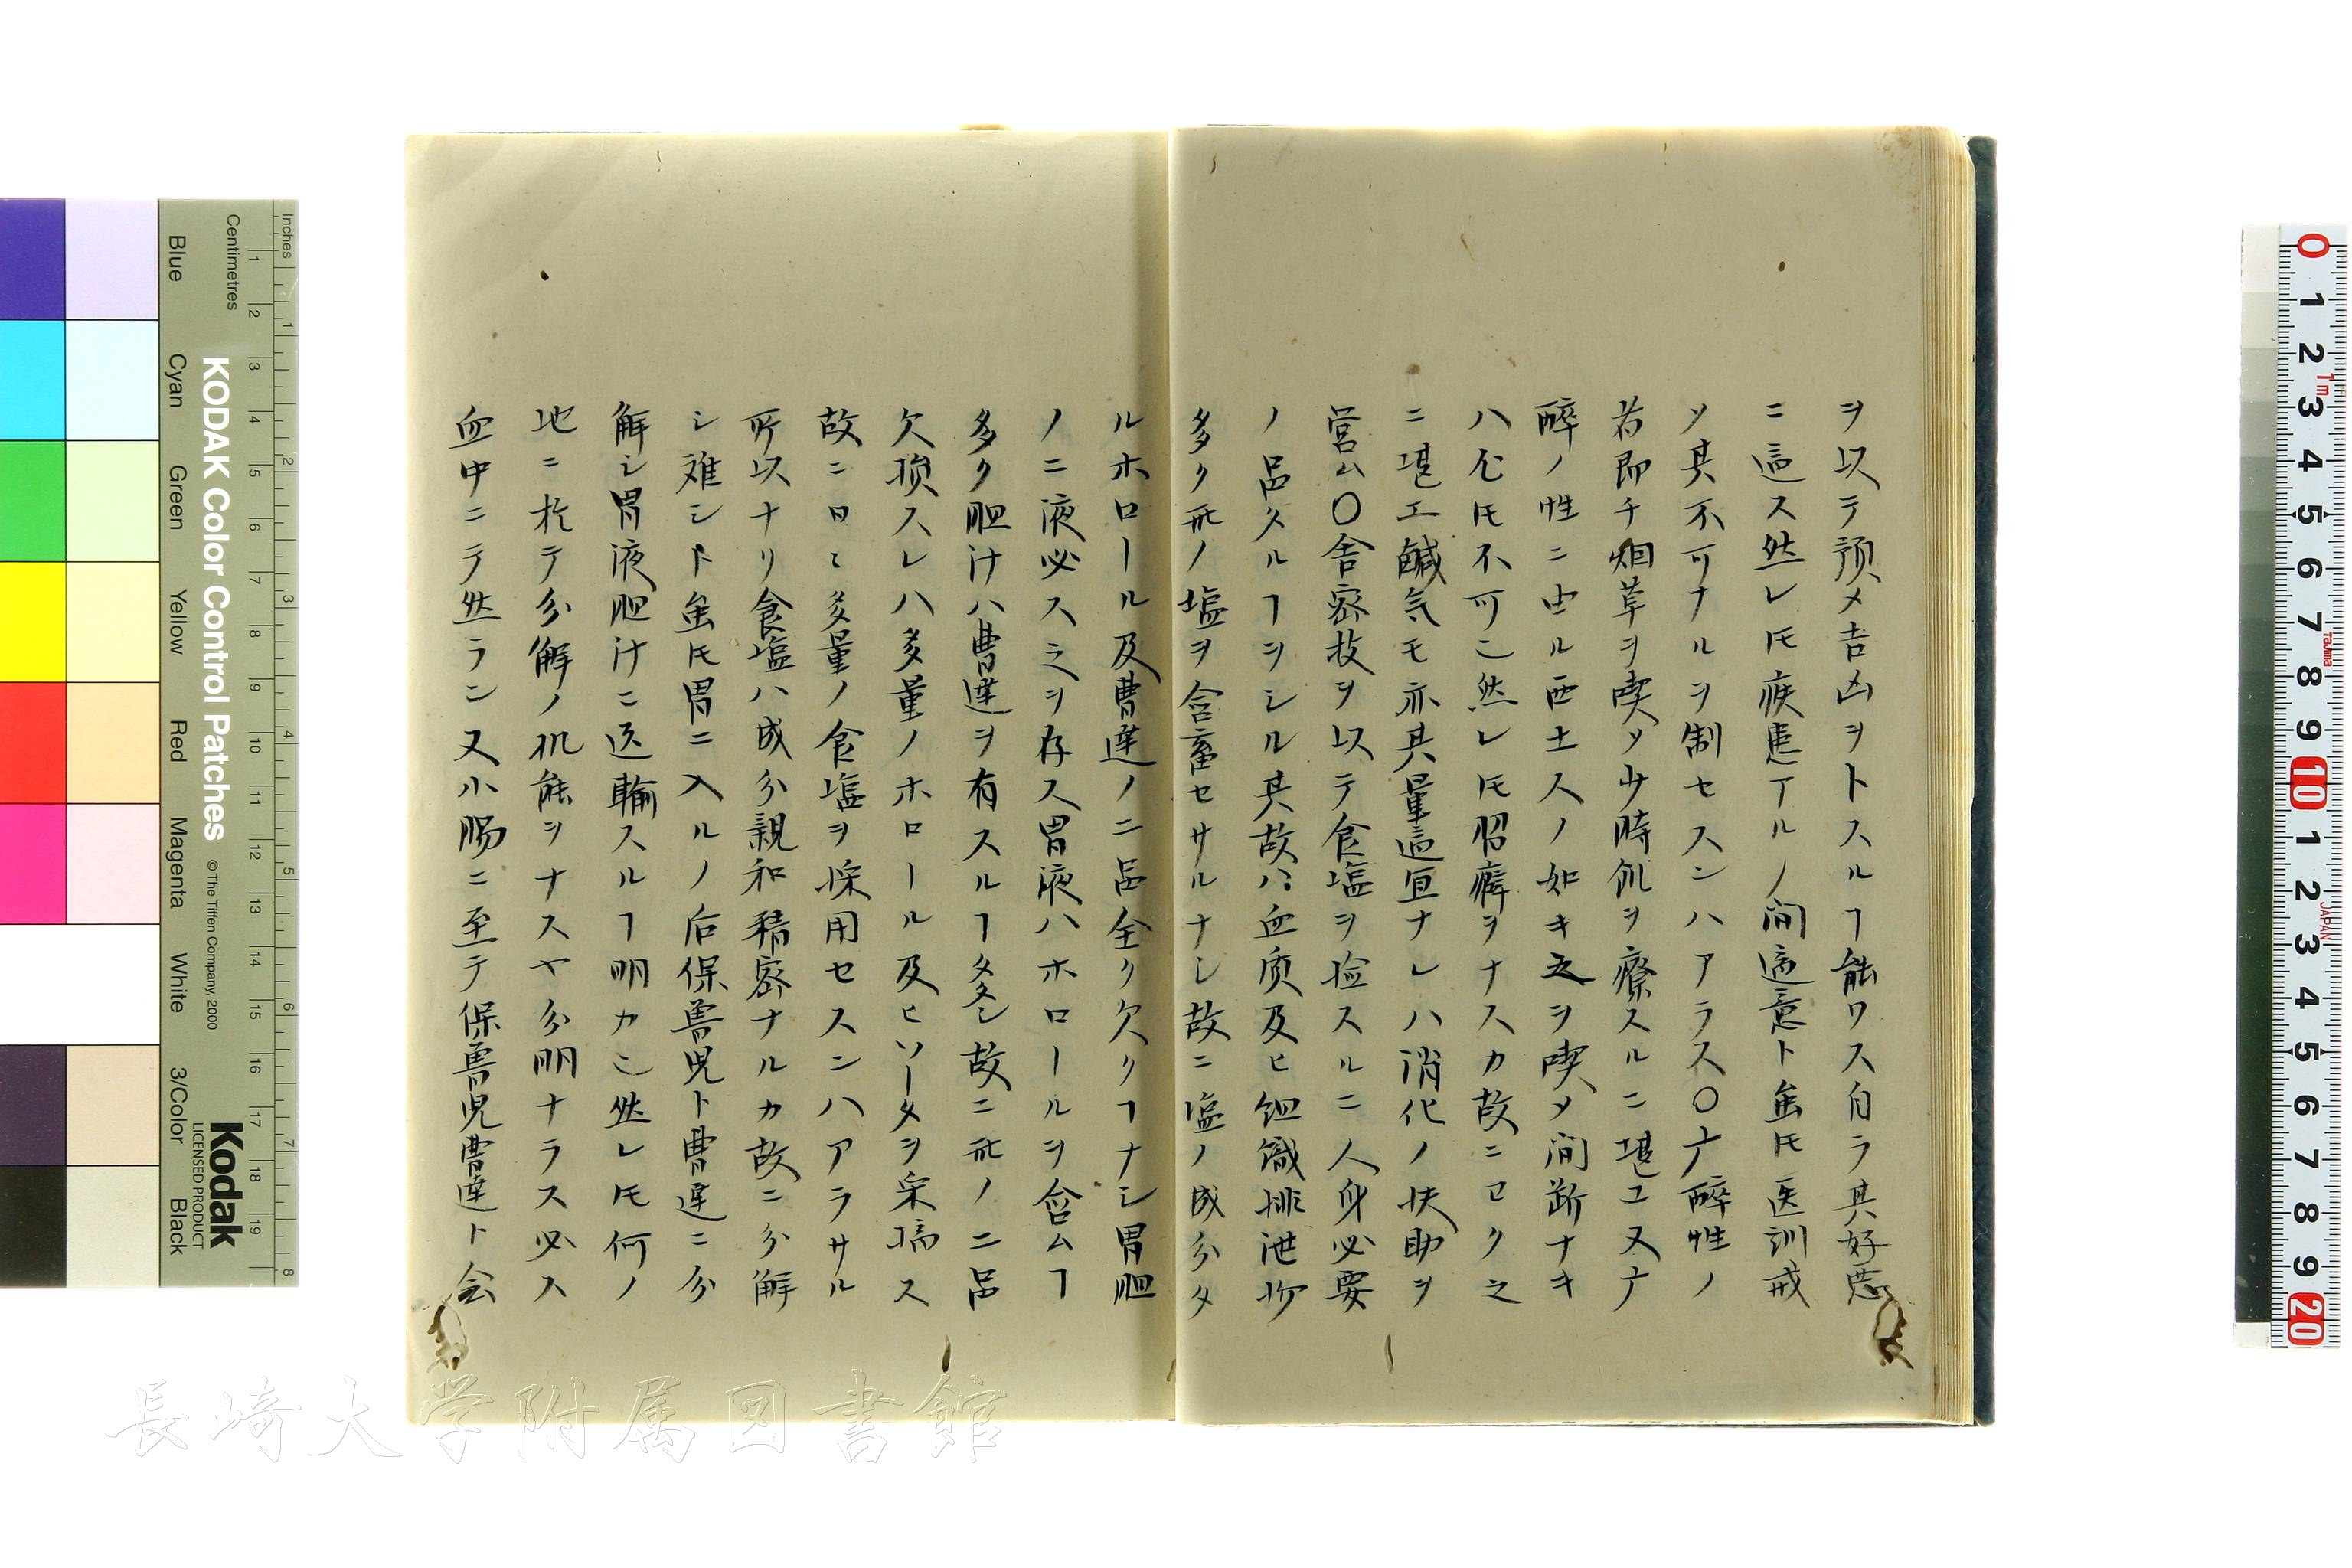 ヲ以テ預メ吉凶ヲトスルヿ能ワス自ラ其好悪
ニ適ス然レ𪜈疾患アルノ間適意ト虽𪜈医訓戒
ソ其不可ナルヲ制セスンハアラス〇广醉性ノ
者即チ烟草ヲ喫ソ少時飢ヲ療スルニ堪ユ又广
醉ノ性ニ由ル西土人ノ如キ之ヲ喫メ間断ナキ
ハ𪜈不可然レ𪜈ヲナスカ故ニク之
ニ堪エ鹹気モ亦其量適宜ナレハ消化ノ扶助ヲ
営ム〇舎密技ヲ以テ食塩ヲ捡スルニ人身必要
ノ品タルヿヲシル其故ハ血质及ヒ組織排泄物
多ク此ノ塩ヲ含蓄セサルナシ故ニ塩ノ成分タ
ルホロール及曹達ノ二品全ク欠クヿナシ胃胆
ノ二液必ス之ヲ存ス胃液ハホロールヲ含ムヿ
多ク胆汁ハ曹達ヲ有スルヿ多シ故ニ此ノ二品
欠損スレハ多量ノホロール及ヒソータヲ采摘ス
故ニ日々多量ノ食塩ヲ採用セスンハアラサル
所以ナリ食塩ハ成分親和精密ナルカ故ニ分解
シ难シト虽𪜈胃ニ入ルノ后保魯児ト曹達ニ分
解シ胃液胆汁ニ送輸スルヿ明カ也然レ𪜈何ノ
地ニ於テ分解ノ机能ヲナスヤ分明ナラス必ス
血中ニテ然ラン又小腸ニ至テ保魯児曹達ト会
Inches
Centimetres
Blue
Cyan
Green
Yellow
Red
Magenta
White
3/Color
Black
KODAK Color Control Patches
© The Tiffen Company, 2000
Kodak
LICENSED PRODUCT
長崎大学附属図書館